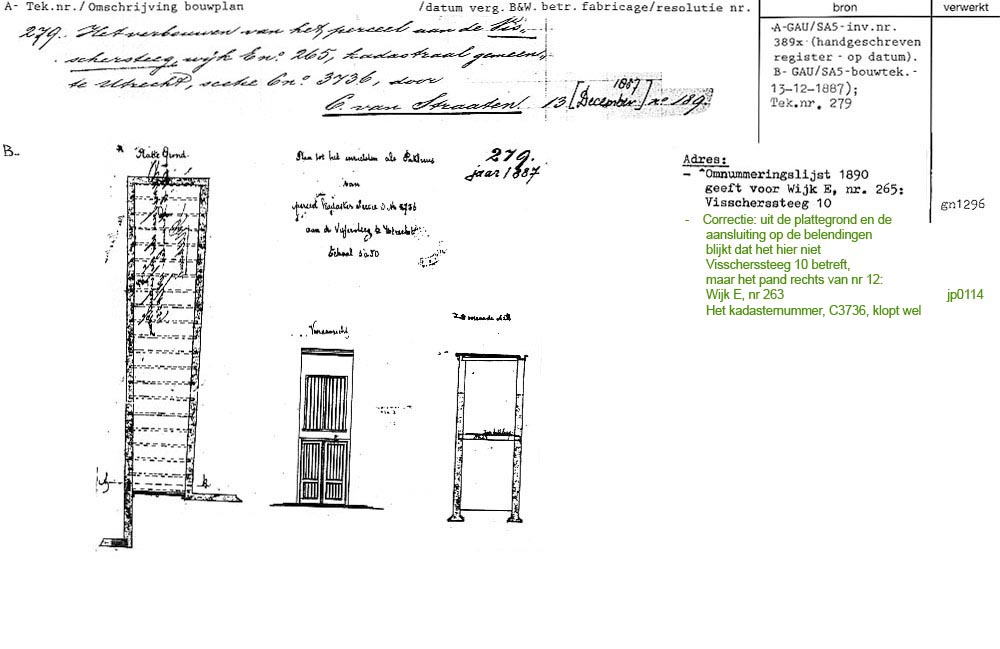 A- Tek.nr./Omschrijving bouwplan /datum verg. B&W. betr. fabricage/resolutie nr.
bron
verwerkt
279. Het verbouwen van het perceel aan de Vis-
schersteeg, wijk E no. 265, kadastraal gemeen-
te Utrecht, sectie C no. 3736, door
C. van Straaten. 13 [December 1887] no 189.
A-GAU/SA5-inv.nr.
389x (handgeschreven
register - op datum).
B- GAU/SA5-bouwtek.-
13-12-1887);
Tek.nr. 279
B-
Platte Grond
Plan tot het inrichten als Pakhuis
van
perceel Kadaster Sectie C. No 3736
aan de Vissersteeg te Utrecht
Schaal 1 à 50
279.
jaar 1887
Vooraanzicht
Adres:
- "Omnummeringslijst 1890
geeft voor Wijk E, nr. 265:
Visscherssteeg 10
gn1296
- Correctie: uit de plattegrond en de
aansluiting op de belendingen
blijkt dat het hier niet
Visscherssteeg 10 betreft,
maar het pand rechts van nr 12:
Wijk E, nr 263
jp0114
Het kadasternummer, C3736, klopt wel